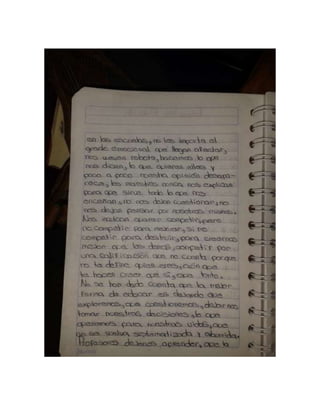 en las escuelas, no les importa el
grado emocional que llegan afectar,
nos vuelven robots, hacemos lo que
nos dicen, lo que quieren ellos y
poco a poco nuestra opinión desapa-
rece, los maestros nunca nos explican
para que sirve todo lo que nos
enseñan, no nos dejan cuestionar, no
nos dejan pensar por nosotros mismos.
Nos hacen querer competir, pero
no competir para mejorar, si no
competir para destruir, para creernos
mejor que los demás, competir por
una calificación que no cuenta porque
no te define quien eres, pasión que
te hacen creer que si, que tonto.
No se han dado cuenta que la mejor
forma de educar es dejando que
exploremos, que cuestionemos, dejarnos
tomar nuestras decisiones, lo que
queremos para nuestras vidas, que
no se vuelva sistematizada y aburrida.
Profesores dejenos aprender, que la